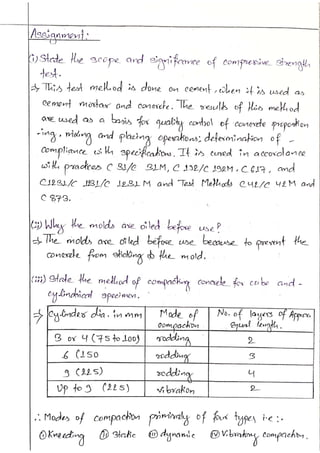 Assignment:
(i) State the scope and significance of compressive strength
test.
⇒ This test method is done on cement, when it is used as
cement mortar and concrete. The results of this method
are used as a basis for quality control of concrete proportion
-ing, mixing and placing operations; determination of -
compliance with specifications. It is cured in accordance
with practices C 31/C 31M, C 192/C 192M, C 617, and
C1231/C 1231M and Test Methods C42/C 42M and
C 873.
(ii) Why the molds are oiled before use?
⇒ The molds are oiled before use because to prevent the
concrete from sticking to the mold.
(iii) State the method of compacting concrete for cube and -
cylindrical specimen.
⇒ Cylinder dia. in mm | Mode of compaction | No. of layers of Approx. equal length.
3 or 4 (75 to 100) | rodding | 2
6 (150 | rodding | 3
9 (225) | rodding | 4
Up to 9 (225) | vibration | 2
∴ Modes of compaction primarily of four types i.e :-
(i) Kneading (ii) Static (iii) dynamic (iv) Vibrating compaction.